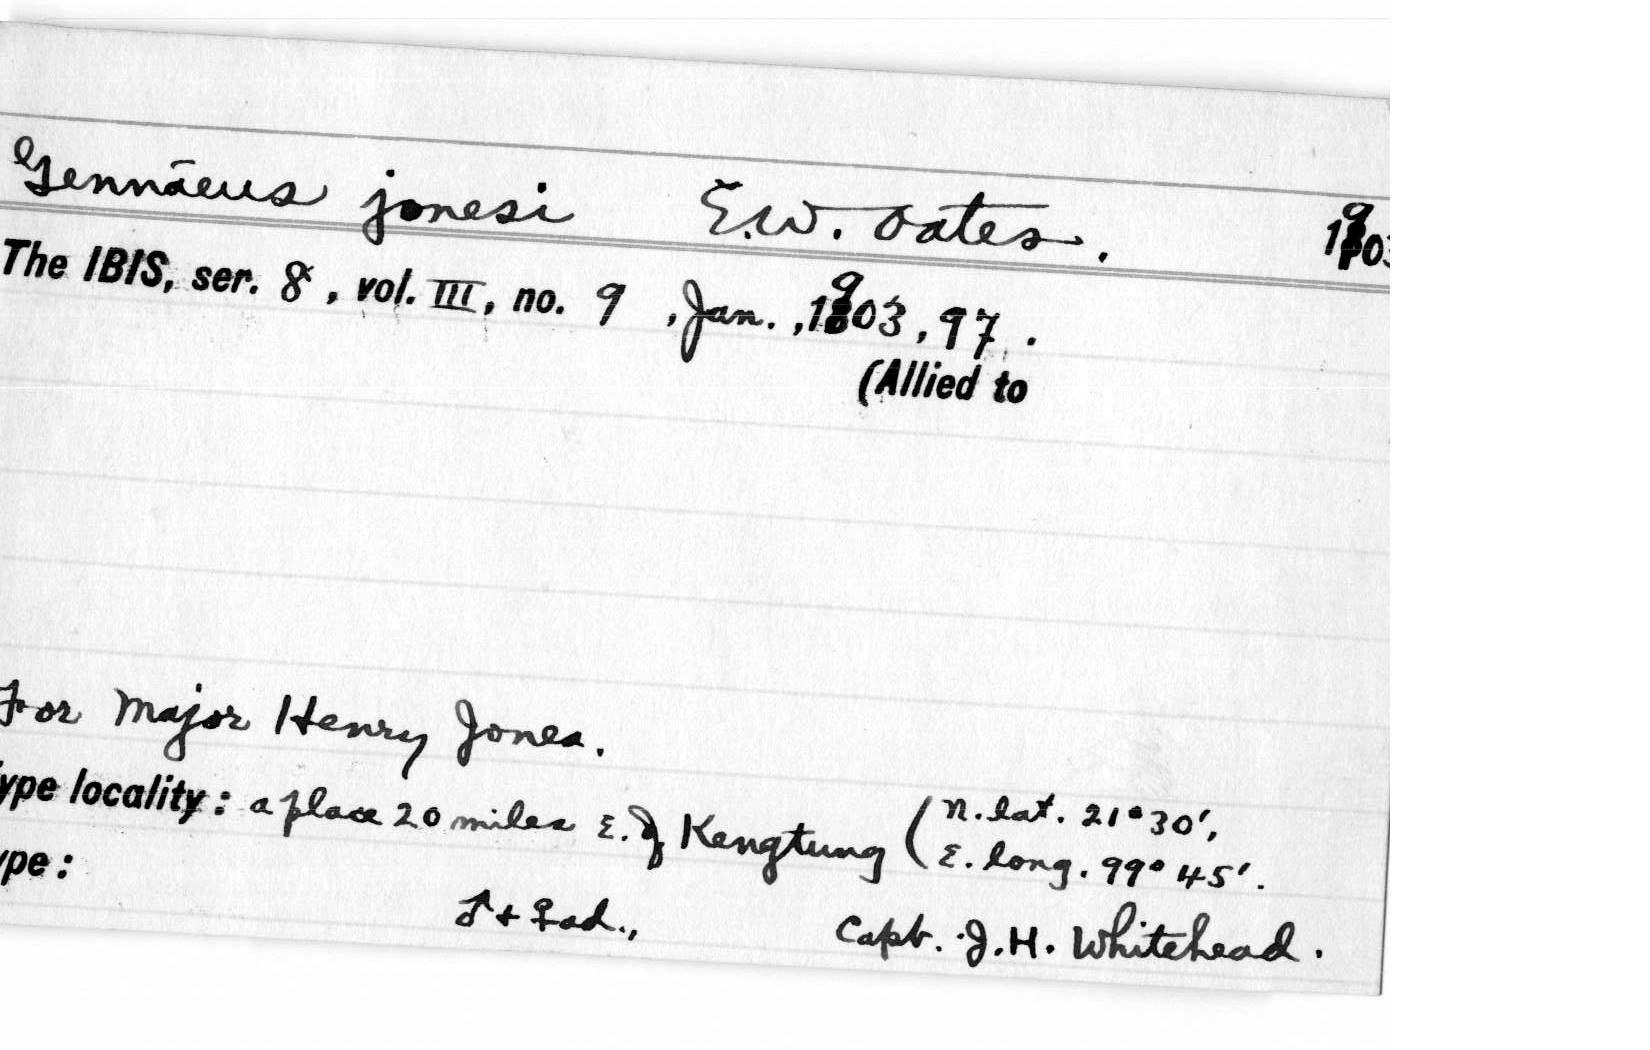 Gennāeus jonesi E.W. Oates. 1903
The IBIS, ser. 8, vol. III, no. 9, Jan., 1903, 97.
(Allied to
For Major Henry Jones.
ype locality: a place 20 miles E. of Kengtung (N. lat. 21°30',
E. long. 99° 45'.
ype:
♂ + ♀ ad., Capt. J.H. Whitehead.